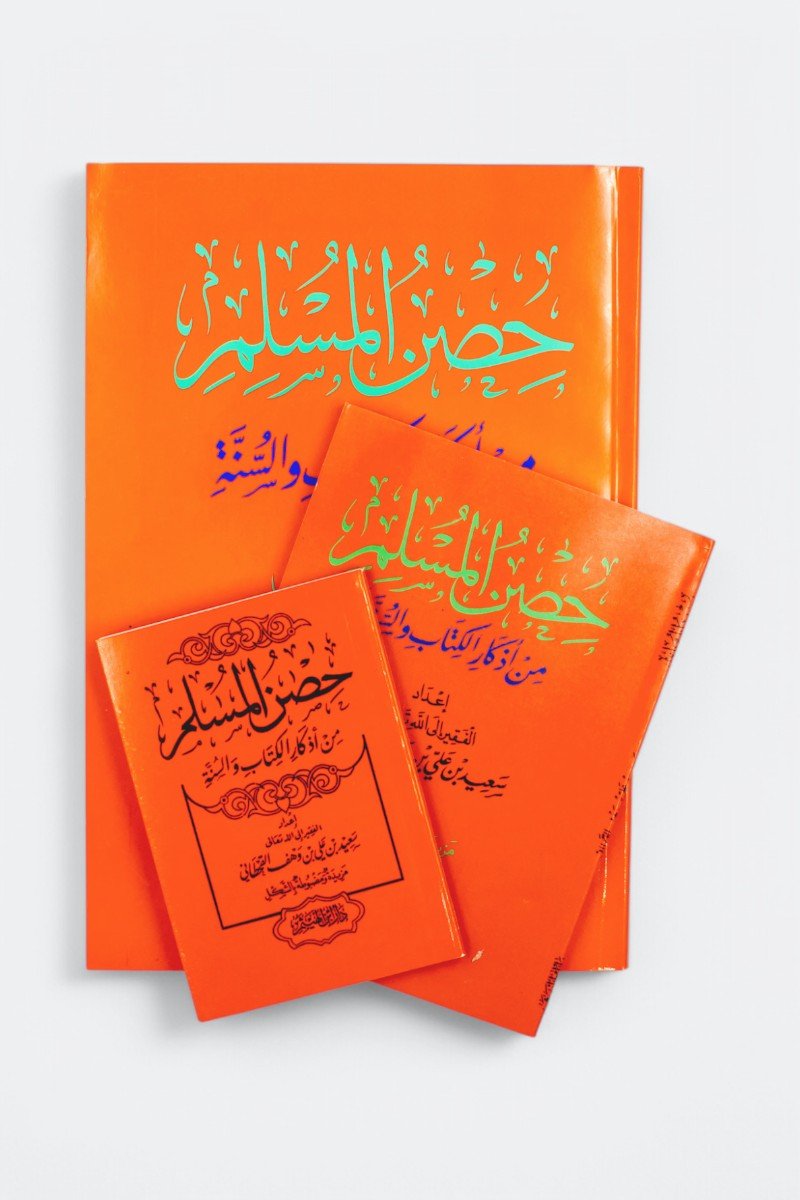 حِصْنُ المُسْلِمِ
والسُّنَّةِ
حِصْنُ المُسْلِمِ
مِنْ أذكَارِ الكِتَابِ والسُّنَّةِ
إعْدَاد
الفَقِير إلى الله
سَعِيد بن عَلي بن
حِصْنُ المُسْلِمِ
مِنْ أذكَارِ الكِتَابِ وَالسُّنَّةِ
إعْدَاد
الفقير إلى الله تعالى
سَعِيْد بن عَلي بن وَهف القَحْطَاني
مَزِيدَة وَمَضبُوطَة بِالشَّكل
دار ابن الهيثم